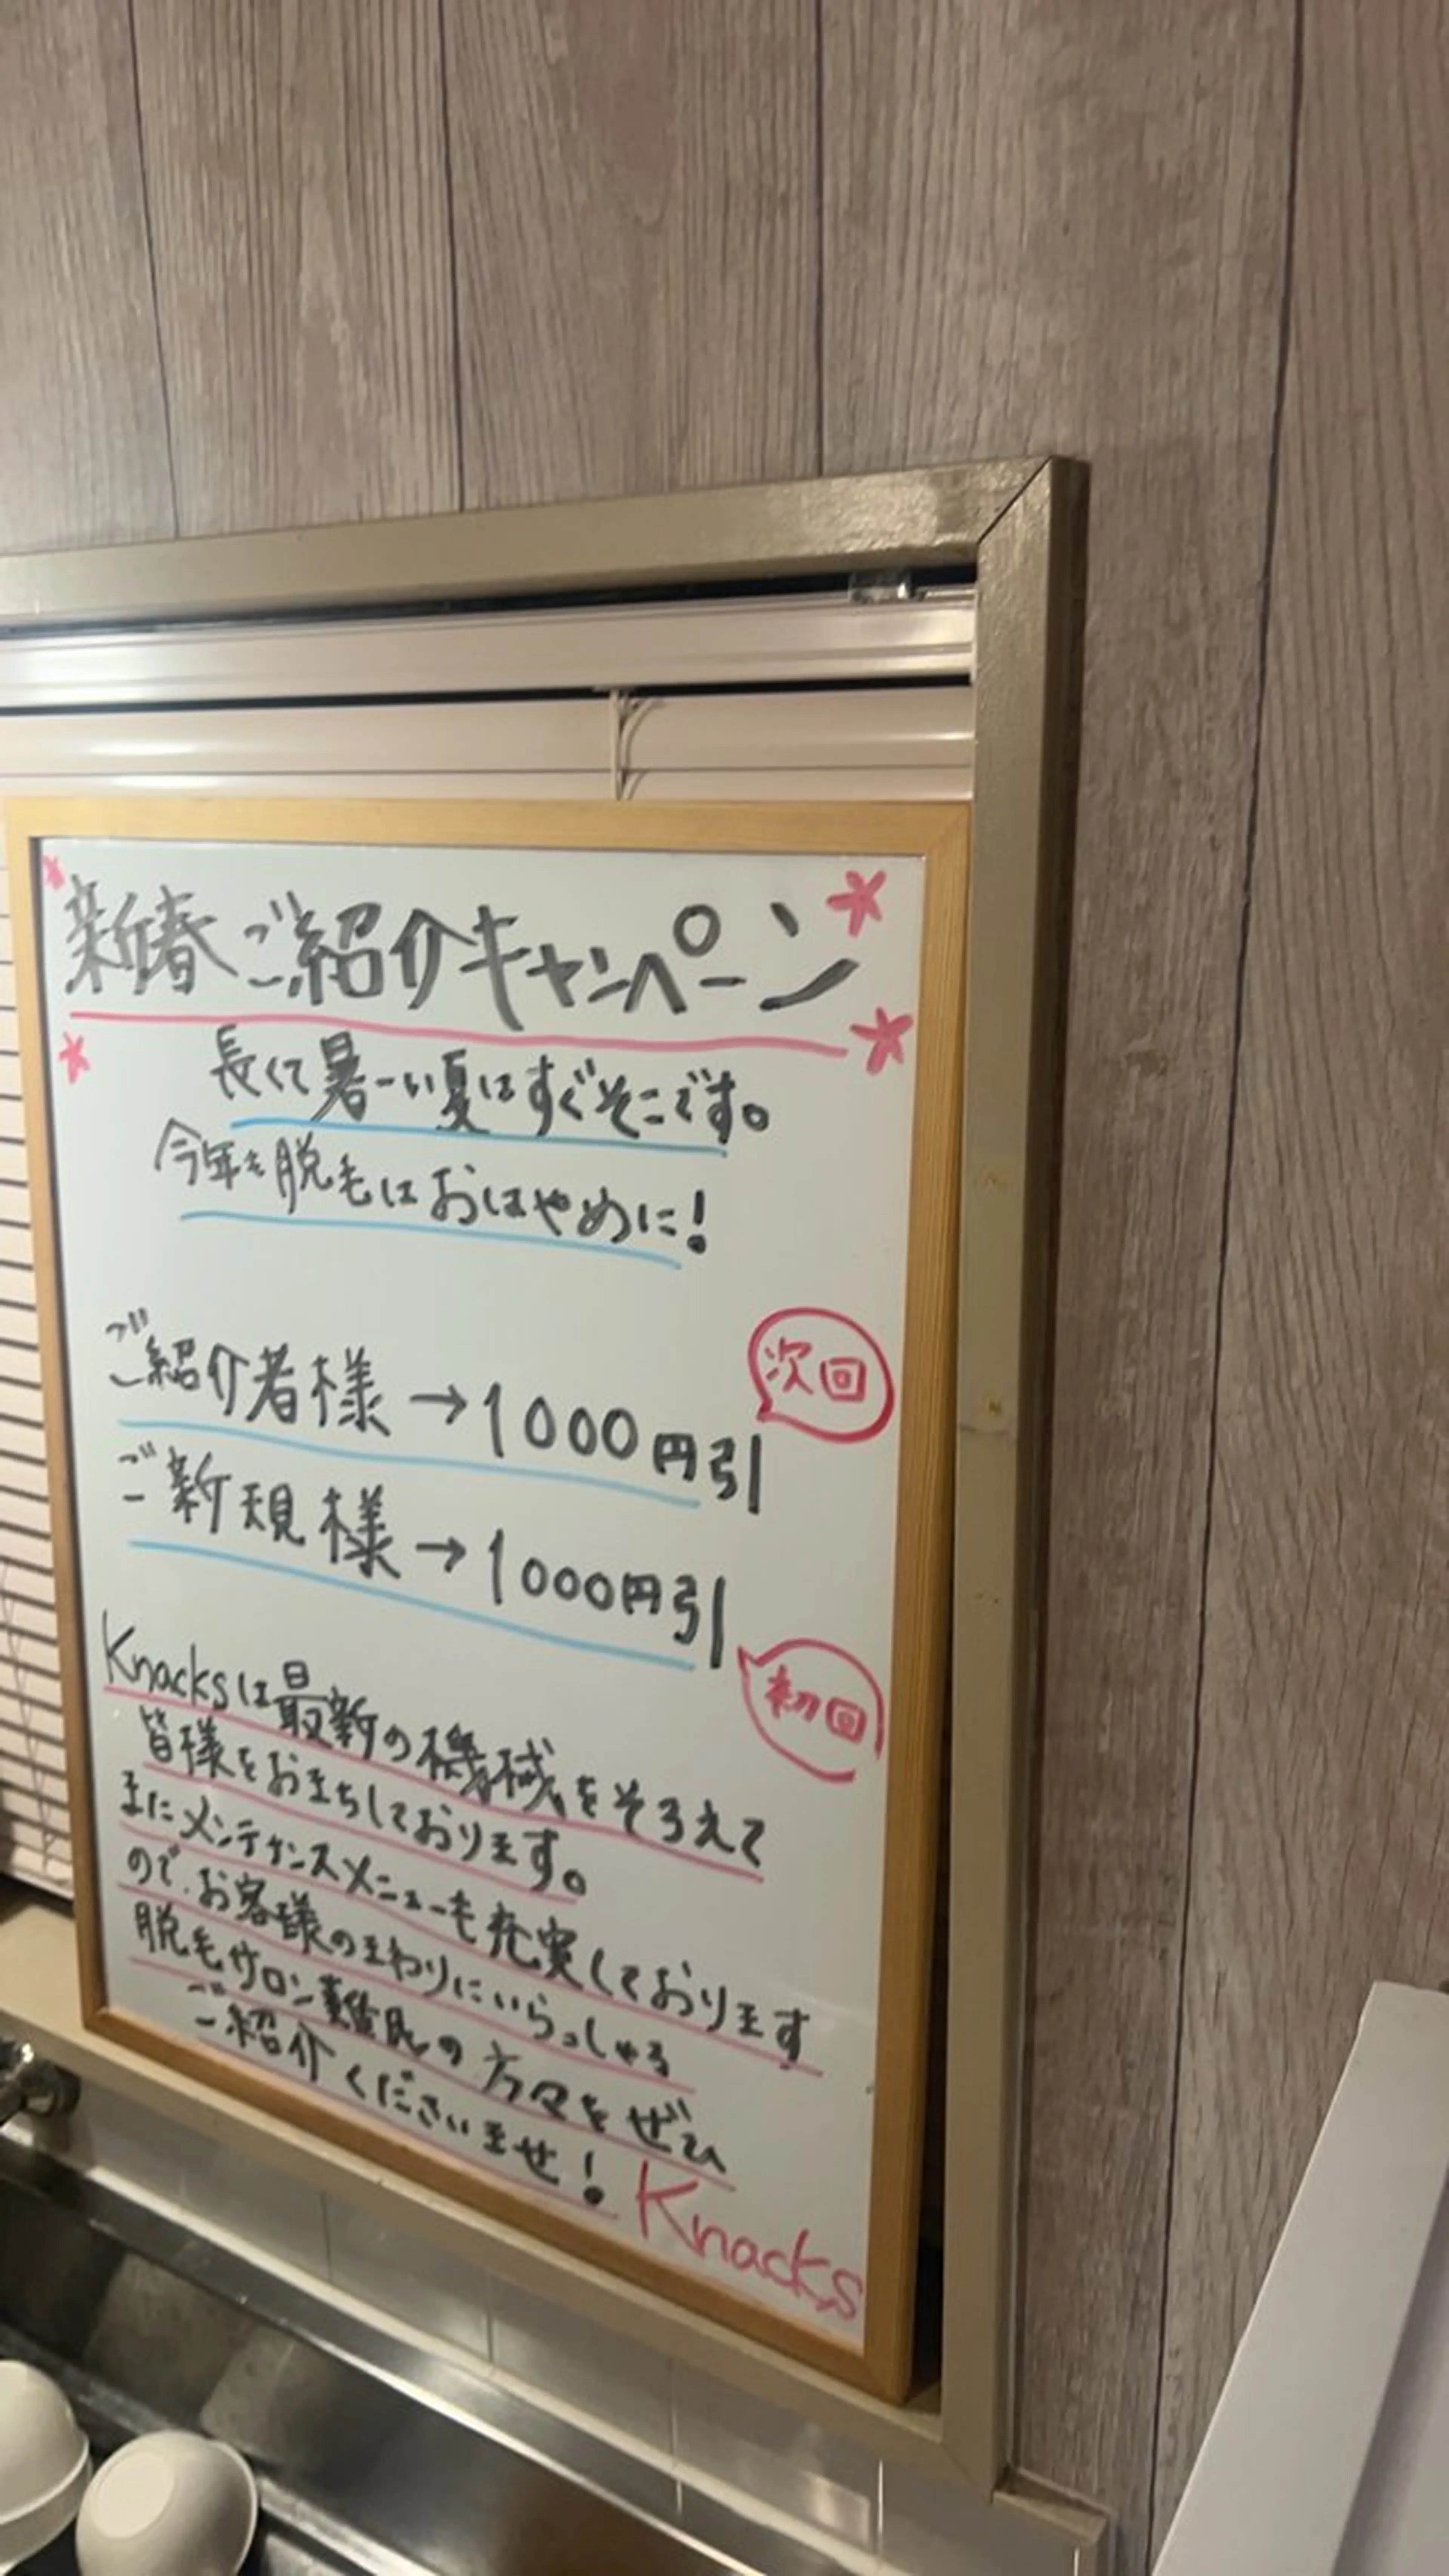 新春ご紹介キャンペーン
長くて暑ーい夏はすぐそこです。
今年も脱毛はおはやめに!
次回
ご紹介者様→1000円引
ご新規様→1000円引
初回
Knacksは最新の機械をそろえて
皆様をおまちしております。
またメンテナンスメニューも充実しております
ので、お客様のまわりにいらっしゃる
脱毛サロン難民の方々をぜひ
ご紹介くださいませ!
Knacks